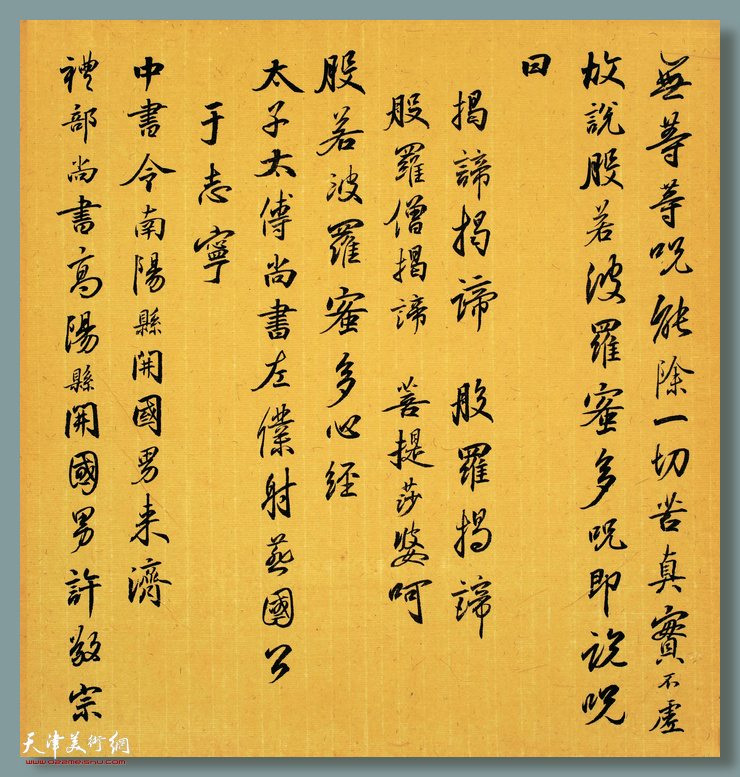 無等等呪能除一切苦真實不虛
故說般若波羅蜜多呪即說呪
曰
揭諦揭諦 般羅揭諦
般羅僧揭諦 菩提莎婆呵
般若波羅蜜多心經
太子太傅尚書左僕射燕國公
于志寧
中書令南陽縣開國男来濟
禮部尚書高陽縣開國男許敬宗
天津美術網
www.022meishu.com